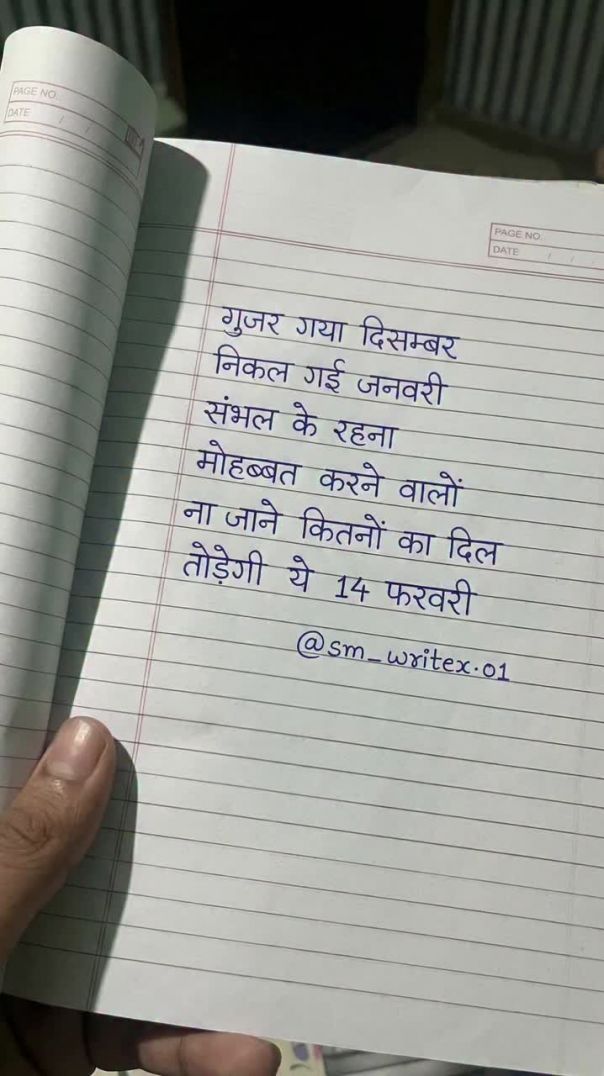 PAGE NO.
DATE / /
PAGE NO.
DATE / /
गुजर गया दिसम्बर
निकल गई जनवरी
संभल के रहना
मोहब्बत करने वालों
ना जाने कितनों का दिल
तोड़ेगी ये 14 फरवरी
@sm_writex.01